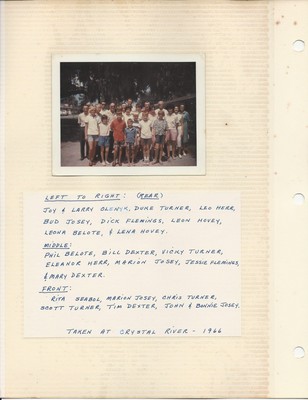 LEFT TO RIGHT: (REAR)
JOY & LARRY OLENYK, DUKE TURNER, LEO HERR,
BUD JOSEY, DICK FLEMINGS, LEON HOVEY,
LEONA BELOTE, & LENA HOVEY.
MIDDLE:
PHIL BELOTE, BILL DEXTER, VICKY TURNER,
ELEANOR HERR, MARION JOSEY, JESSIE FLEMINGS,
& MARY DEXTER.
FRONT:
RITA SEABOL, MARION JOSEY, CHRIS TURNER,
SCOTT TURNER, TIM DEXTER, JOHN & BONNIE JOSEY.
TAKEN AT CRYSTAL RIVER - 1966